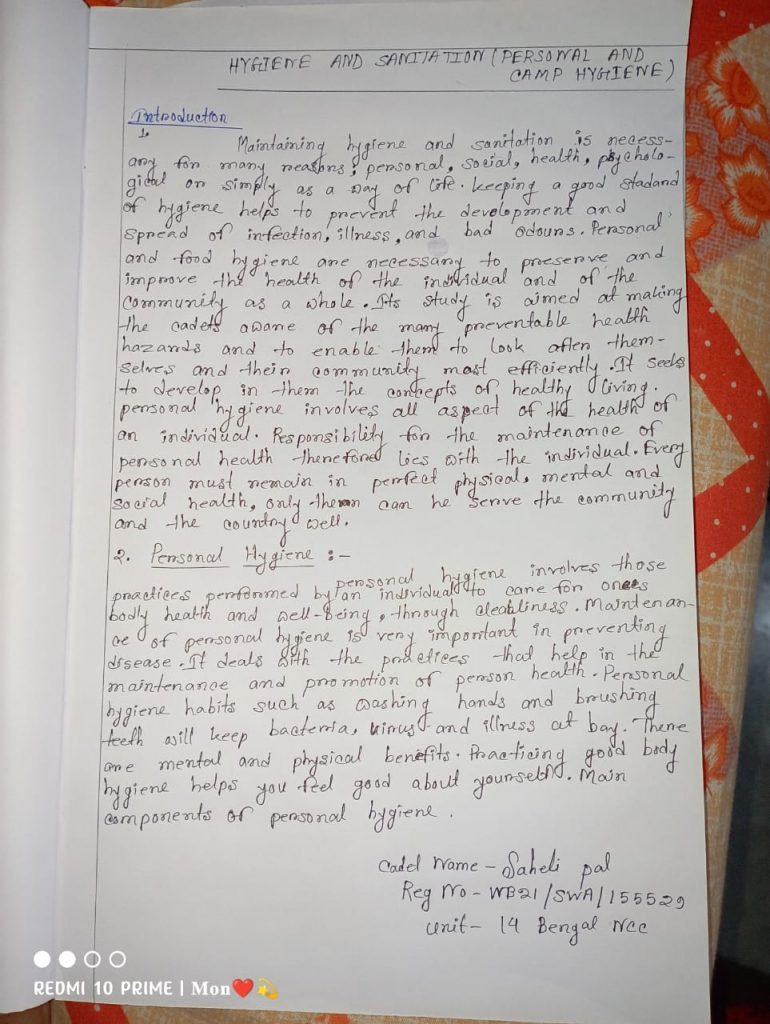 HYGIENE AND SANITATION (PERSONAL AND
CAMP HYGIENE)
Introduction
1.
Maintaining hygiene and sanitation is necess-
ary for many reasons; personal, social, health, psycholo-
gical or simply as a way of life. keeping a good stadand
of hygiene helps to prevent the development and
spread of infection, illness, and bad odours. Personal
and food hygiene are necessary to preserve and
improve the health of the individual and of the
community as a whole. Its study is aimed at making
the cadets aware of the many preventable health
hazards and to enable them to look after them-
selves and their community most efficiently. It seeks
to develop in them the concepts of healthy living.
personal hygiene involves all aspect of the health of
an individual. Responsibility for the maintenance of
personal health therefore lies with the individual. Every
person must remain in perfect physical, mental and
social health, only then can he serve the community
and the country well.
2. Personal Hygiene :-
personal hygiene involves those
practices performed by an individual to care for ones
bodly health and well-being, through cleabliness. Maintenan-
ce of personal hygiene is very important in preventing
disease. It deals with the practices that help in the
maintenance and promotion of person health. Personal
hygiene habits such as washing hands and brushing
teeth will keep bacteria, virus and illness at bay. There
are mental and physical benefits. Practicing good body
hygiene helps you feel good about yourself. Main
components of personal hygiene.
Cadet Name - Saheli pal
Reg No - WB21/SWA/155529
Unit - 14 Bengal NCC
REDMI 10 PRIME | Mon❤️💫